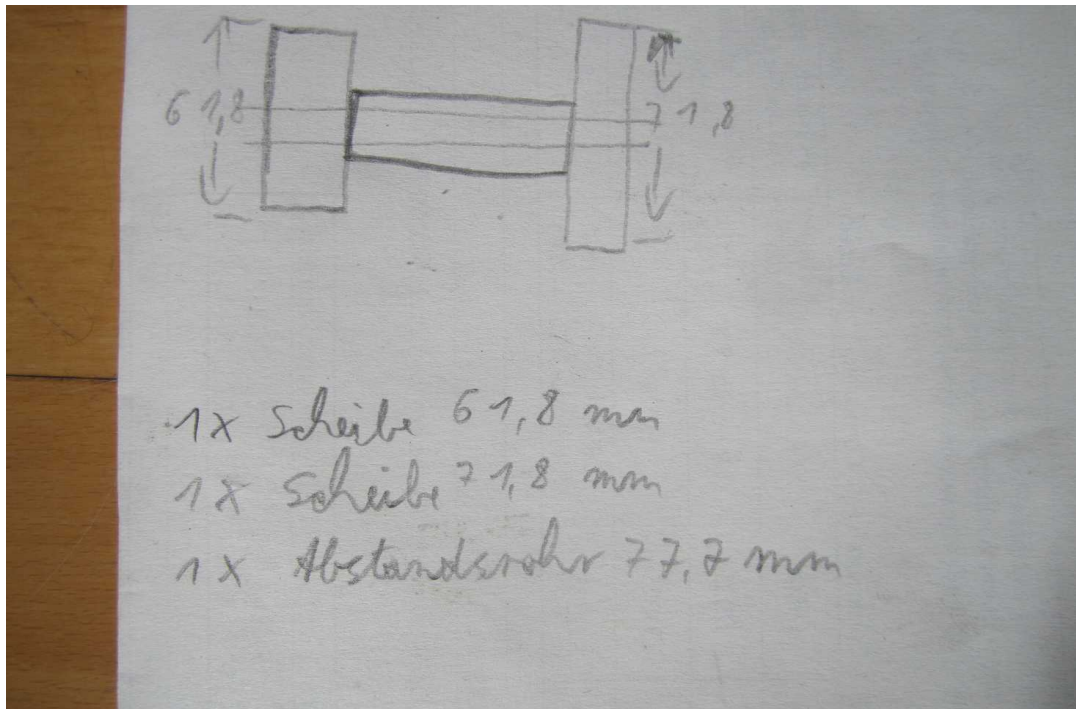 61,8
71,8
1x Scheibe 61,8 mm
1x Scheibe 71,8 mm
1x Abstandsrohr 77,7 mm